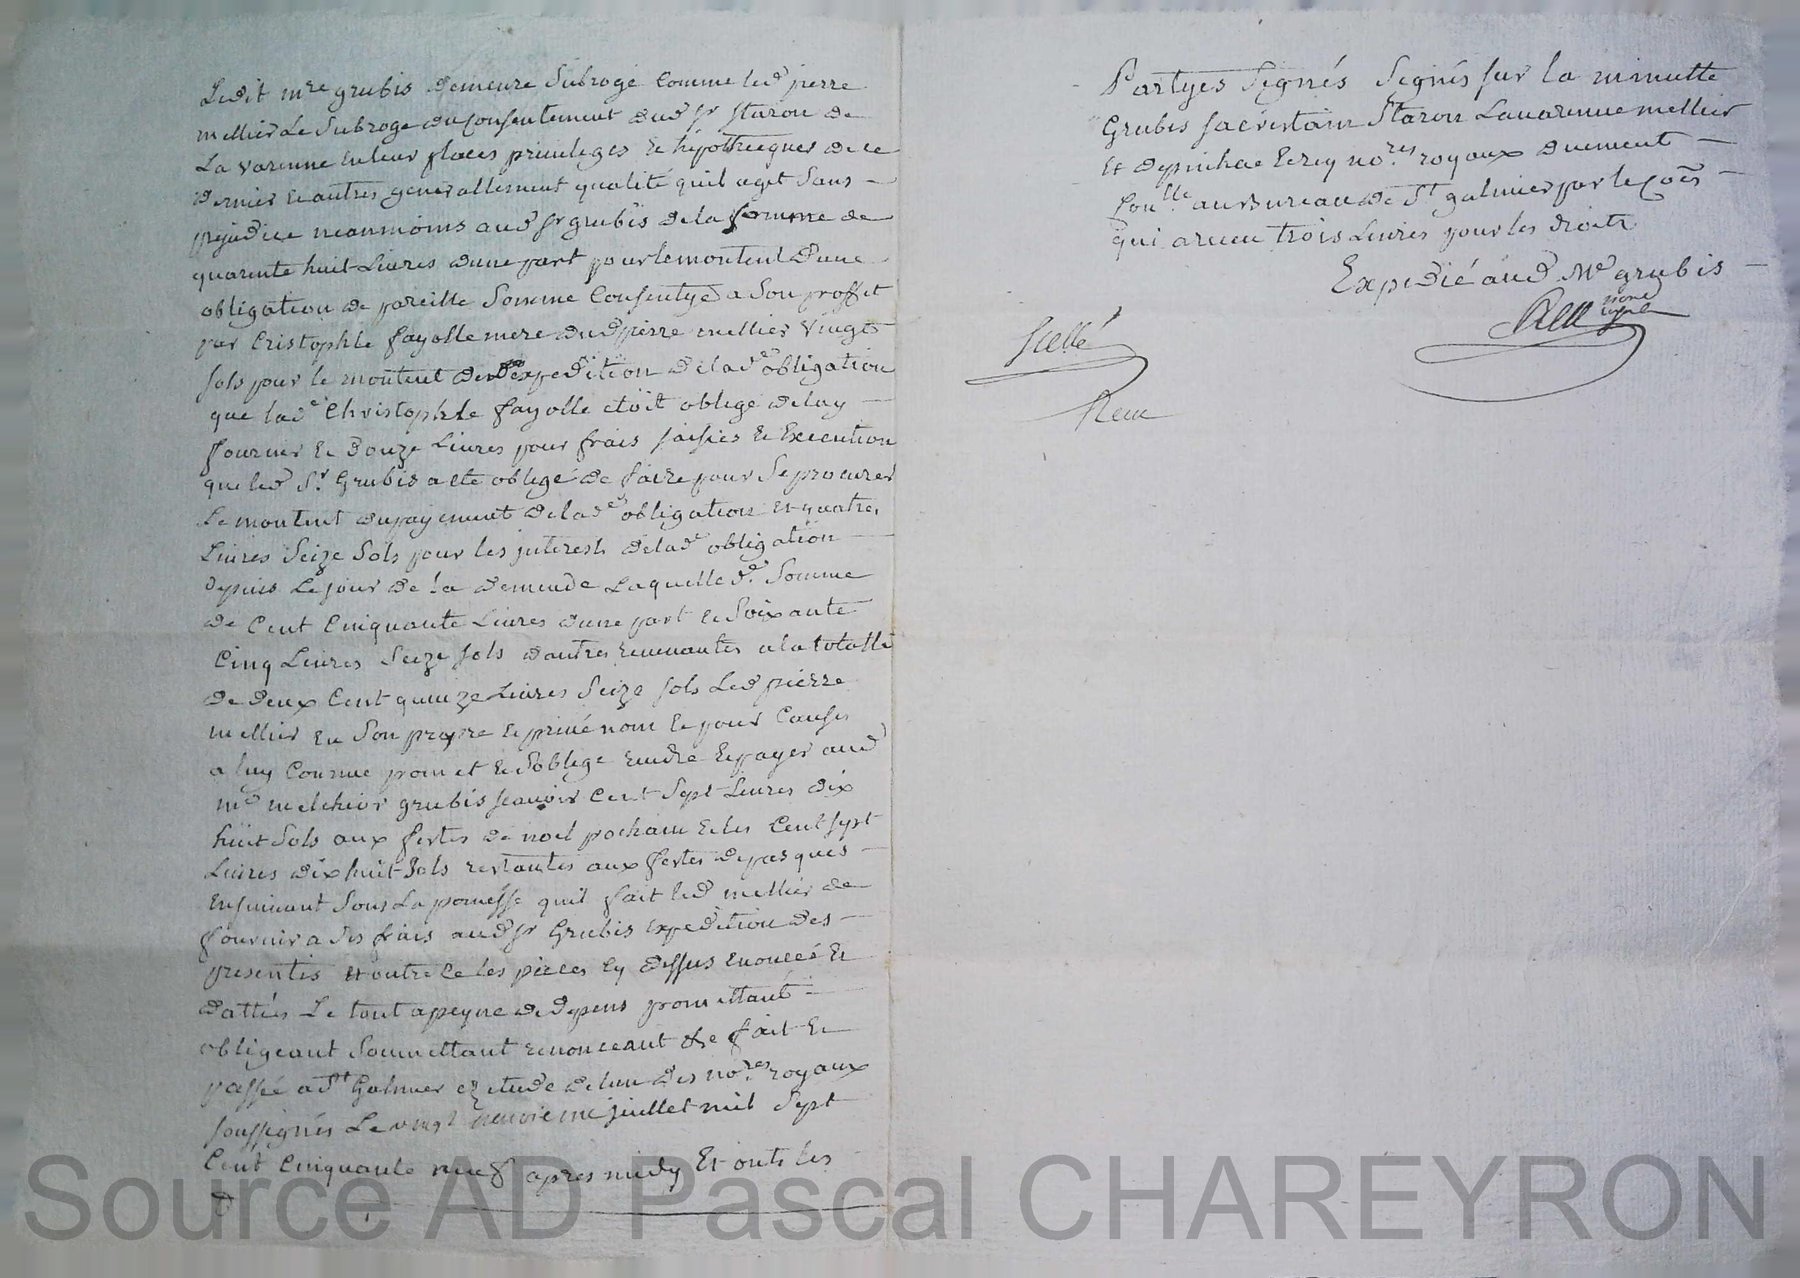 Ledit mre grubis demeure Subrogé Comme led pierre
mellier Le Subroge du Consentement dud Sr Staron de
La varenne en leur places privileges et hipottecques de ce
dernier et autres generallement qualité quil agit Sans
prejudice neanmoins aud Sr grubis de la somme de
quarente huit Livres dune part pour le montent dune
obligation de pareille Somme Consentye a Son proffit
par Cristophle fayolle mere dud pierre mellier vingt
sols pour le montent de expedition de lade obligation
que lade Christophle fayolle etoit oblegé de luy
fournir et douze Livres pour frais saisies et Execution
que led Sr. Grubis a eté oblegé de faire pour Se procurer
Le montent du payement de lade obligation et quatre
Livres Seize Sols pour les interests de lade obligation
depuis Le jour de la demende Laquelle de. Somme
de Cent Cinquante Livres dune part et Soixante
Cinq Livres Seize sols dautres revenantes a la totalle
de deux Cent quinze Livres Seize sols Led pierre
mellier en Son propre et privé nom et pour Causes
a luy Connue promet et Soblege rendre et payer aud
me melchior grubis scavoir Cent Sept Livres dix
huit Sols aux festes de noel pochain et les Cent sept
Livres dix huit Sols restantes aux festes de pasques
Ensuivant Sous La pomesse quil fait led mellier de
fournir a Ses frais aud Sr Grubis expedition des
presentes et outre ce les pieces cy dessus enoncéé et
dattéés Le tout a peyne de depens promettant
obligeant Soumettant renonceant &c fait et
passé a St Galmier ez etude de lun des no.res royaux
soussignés Le vingt neuvieme juillet mil Sept
Cent Cinquante neuf apres midy Et onts les
Partyes Signés Signés sur la minutte
Grubis sacristain Staron Lavarenne mellier
et depinhac et rey no.res royaux duement
Conlle. au Bureau de St galmier par le Coés
qui a receu trois Livres pour les droits
Expedié aud Me grubis
Scellé
Source AD Pascal CHAREYRON